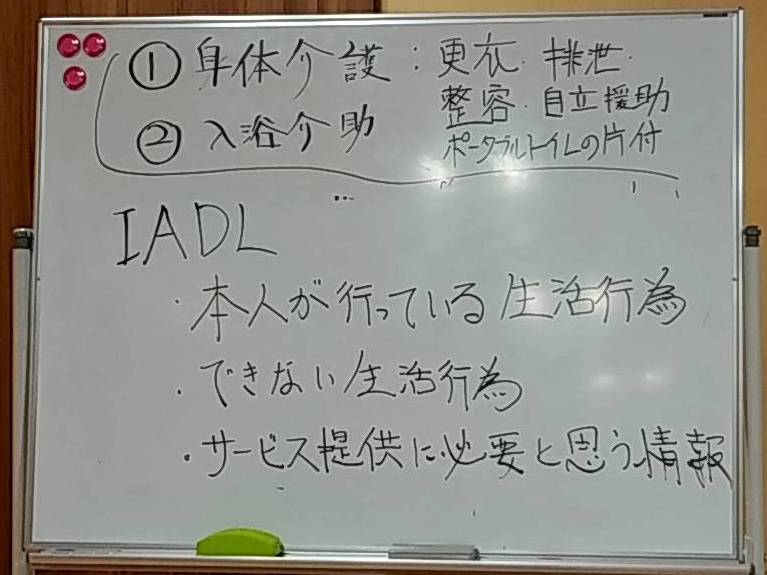 ① 身体介護：更衣．排泄．
整容．自立援助
② 入浴介助
ポータブルトイレの片付
IADL
・本人が行っている生活行為
・できない生活行為
・サービス提供に必要と思う情報